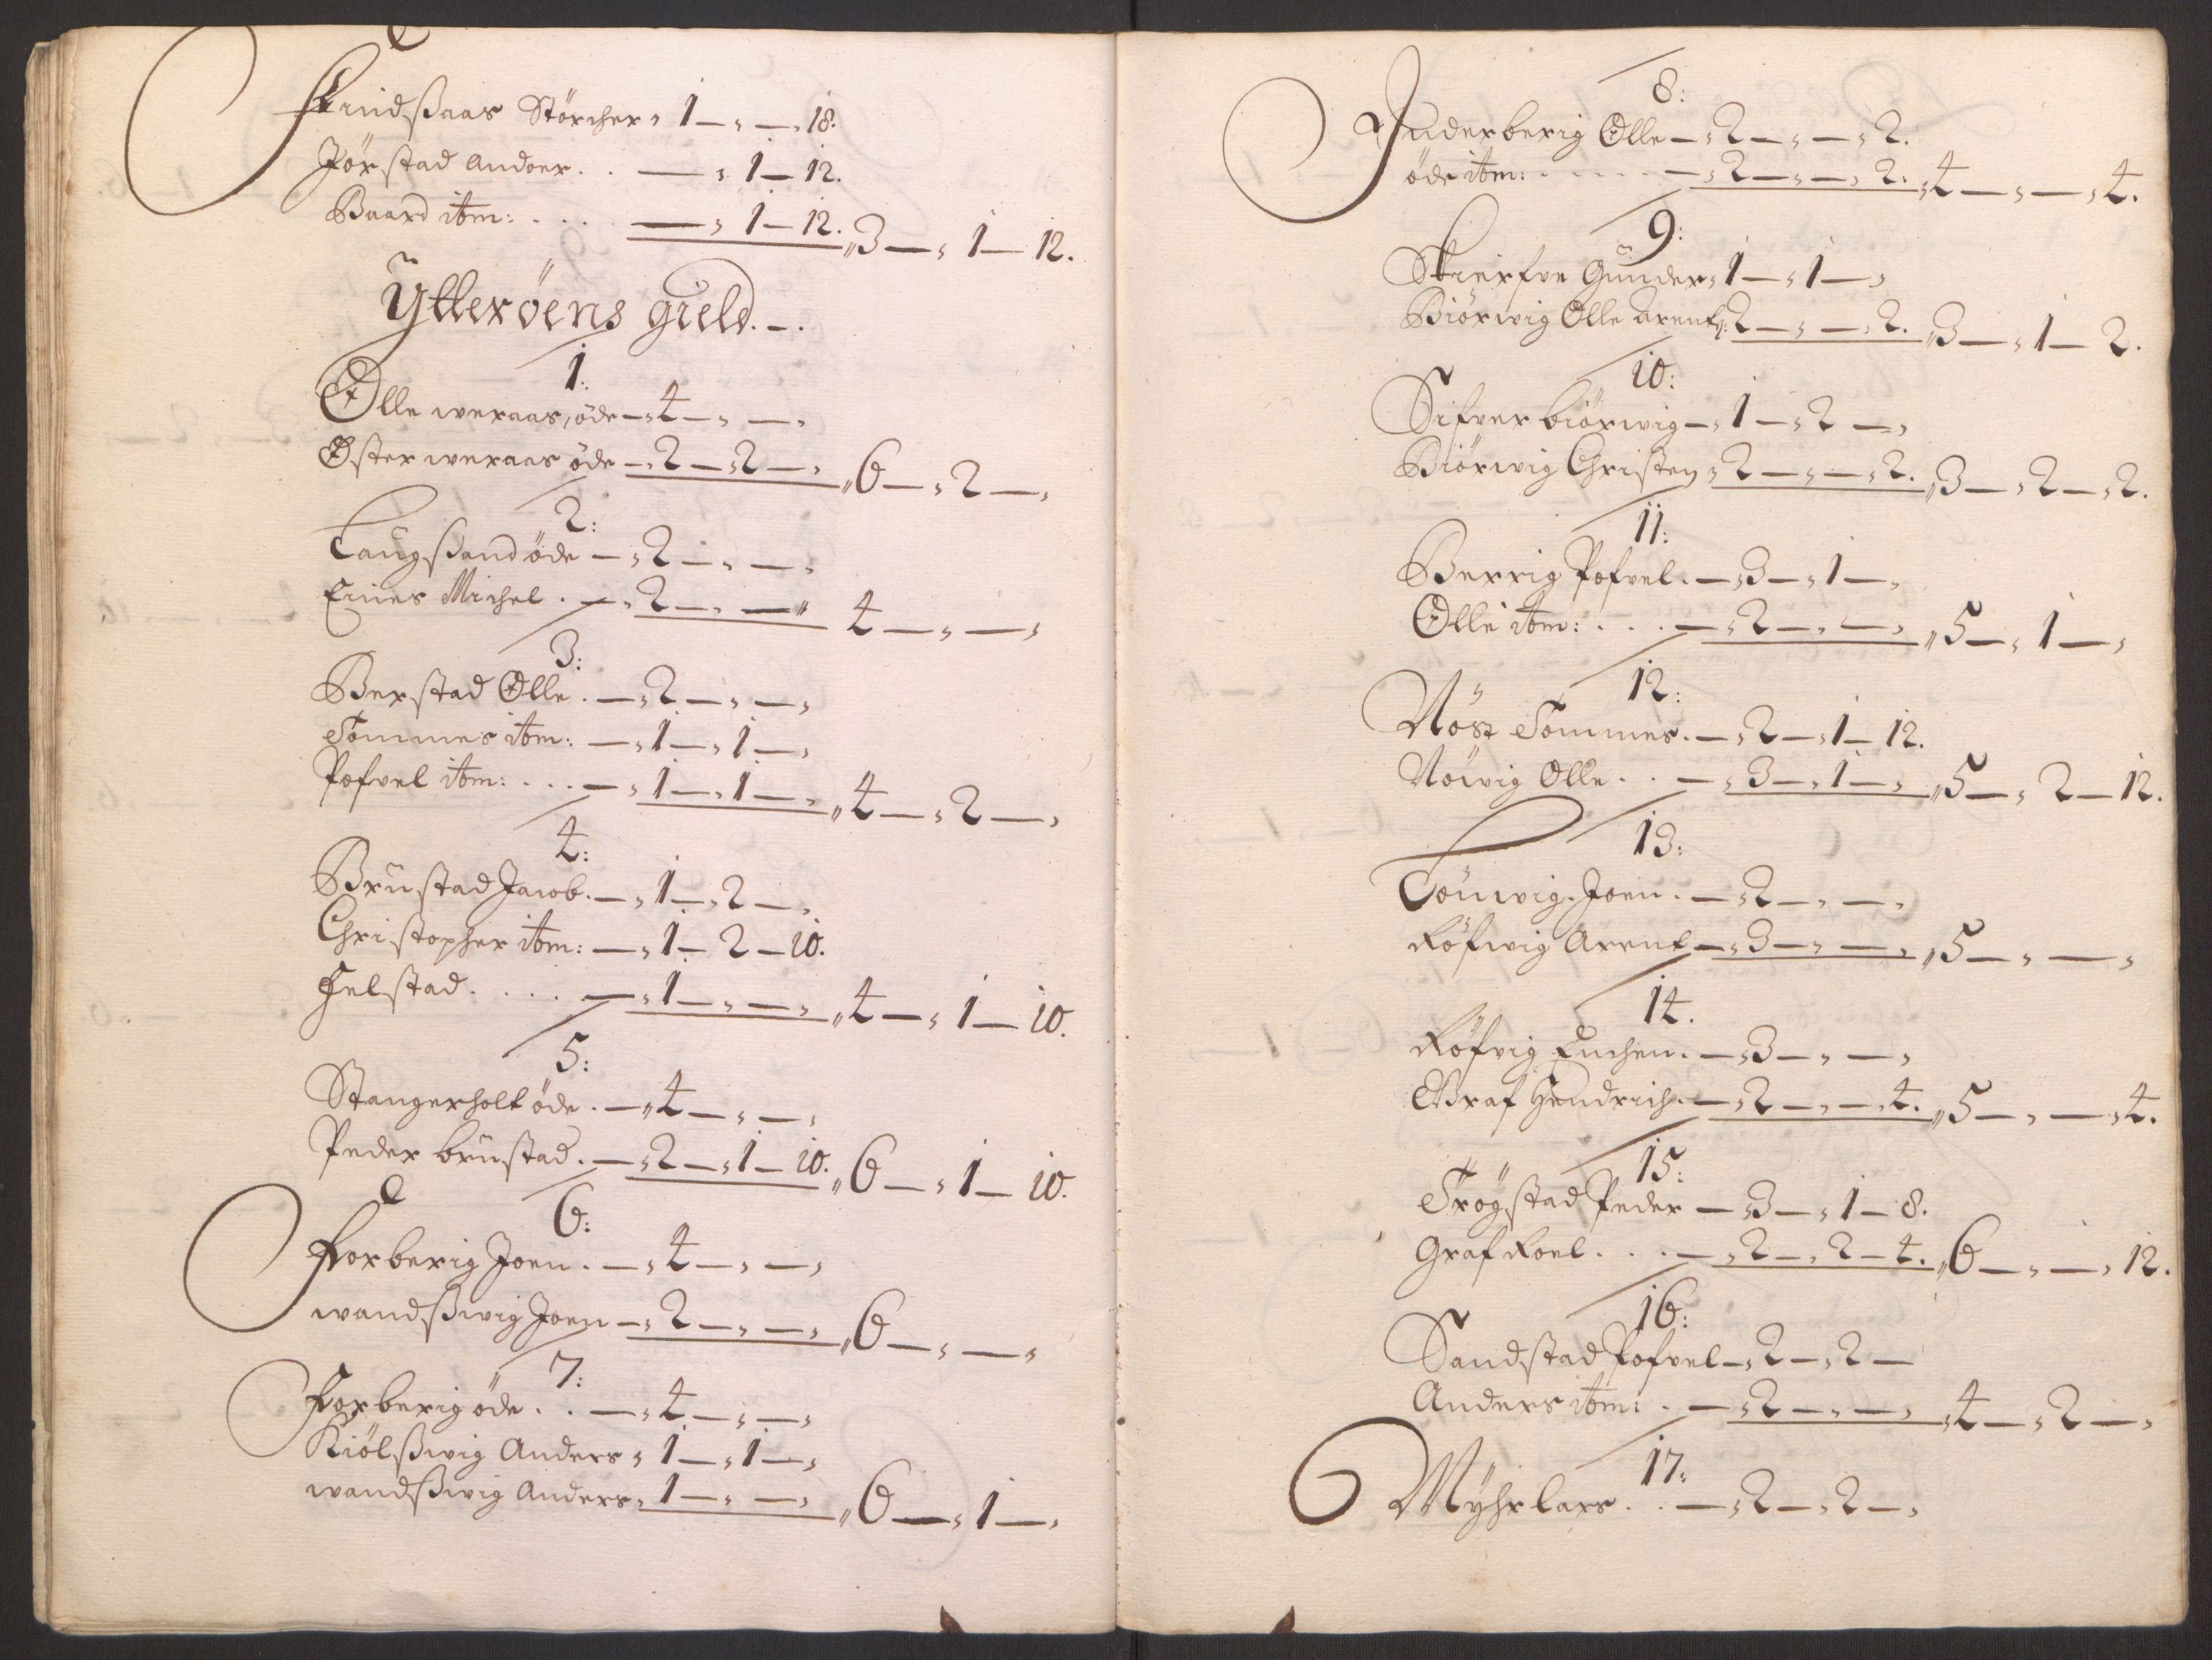 Findsaas Störcher „ 1 — „ — „ 18.
Jörstad Andoer . . — „ 1 — 12.
Baard itm: . . . . — „ 1 — 12. „ 3 — „ 1 — 12.
Ytteröens gield. —.
1:
Olle weraas, öde — „ 4 — „ — „
Öster weraas öde — „ 2 — „ 2 — „ „ 6 — „ 2 — „
2:
Laugsand öde — „ 2 — „ — „
Eines Michel . — „ 2 — „ — „ 4 — „ — „
3:
Berstad Olle . — „ 2 — „ — „
Tommes itm: — „ 1 — „ 1 — „
Pofvel itm: . . . — „ 1 — „ 1 — „ „ 4 — „ 2 — „
4:
Brustad Jacob. — „ 1 — „ 2 — „
Christopher itm: — „ 1 — 2 — 10.
Helstad . . . . . — „ 1 — „ — „ „ 4 — „ 1 — 10.
5:
Stangerholt öde . — „ 4 — „ — „
Peder brustad . — „ 2 — „ 1 — 10. „ 6 — „ 1 — 10.
6:
Forberig Joen . — „ 4 — „ — „
wandswig Joen — „ 2 — „ — „ „ 6 — „ — „
7:
Forberig öde . . — „ 4 — „ — „
Kiölswig Anders „ 1 — „ 1 — „
wandswig Anders „ 1 — „ — „ „ 6 — „ 1 — „
8:
Inderberig Olle — „ 2 — „ — „ 2.
öde itm: . . . . . — „ 2 — „ — „ 2. „ 4 — „ — „ 4.
9:
Skierfve Gunder „ 1 — „ 1 — „
Biörwig Olle arents: 2 — „ — „ 2. „ 3 — „ 1 — 2.
10:
Sifver biörwig — „ 1 — „ 2 — „
Biörwig Christen „ 2 — „ — „ 2. „ 3 — „ 2 — „ 2.
11:
Berrig Pofvel . — „ 3 — „ 1 — „
Olle itm: . . . — „ 2 — „ — „ „ 5 — „ 1 — „
12:
Nöst Tommes . — „ 2 — „ 1 — 12.
Növig Olle . . — „ 3 — „ 1 — „ „ 5 — „ 2 — 12.
13:
Löuwig. Joen . — „ 2 — „ — „
Röfwig Arent — „ 3 — „ — „ „ 5 — „ — „
14.
Röfvig Enchen . — „ 3 — „ — „
Graf Hendrich . — „ 2 — „ — „ 4. „ 5 — „ — „ 4.
15:
Trögstad Peder — „ 3 — „ 1 — 8.
Graf Roel . . . — „ 2 — „ 2 — 4. „ 6 — „ — „ 12.
16:
Sandstad Pofvel — „ 2 — „ 2 —
Anders itm: . — „ 2 — „ — „ „ 4 — „ 2 — „
17:
Myhr lars . . — „ 2 — „ 2 — „